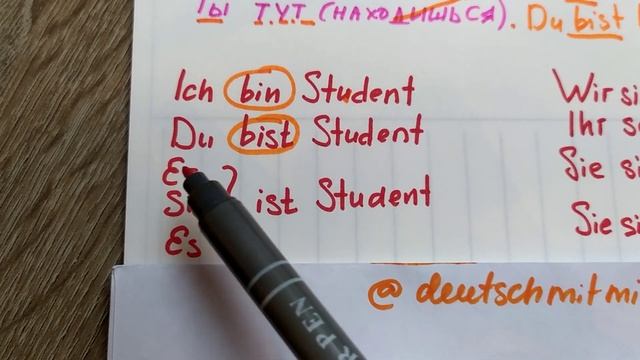 ТЫ ТУТ (НАХОДИШЬСЯ). Du bist
Ich bin Student
Du bist Student
ist Student
Es
Wir si
Ihr s
Sie si
Sie si
@ deutschmitmi
PEN